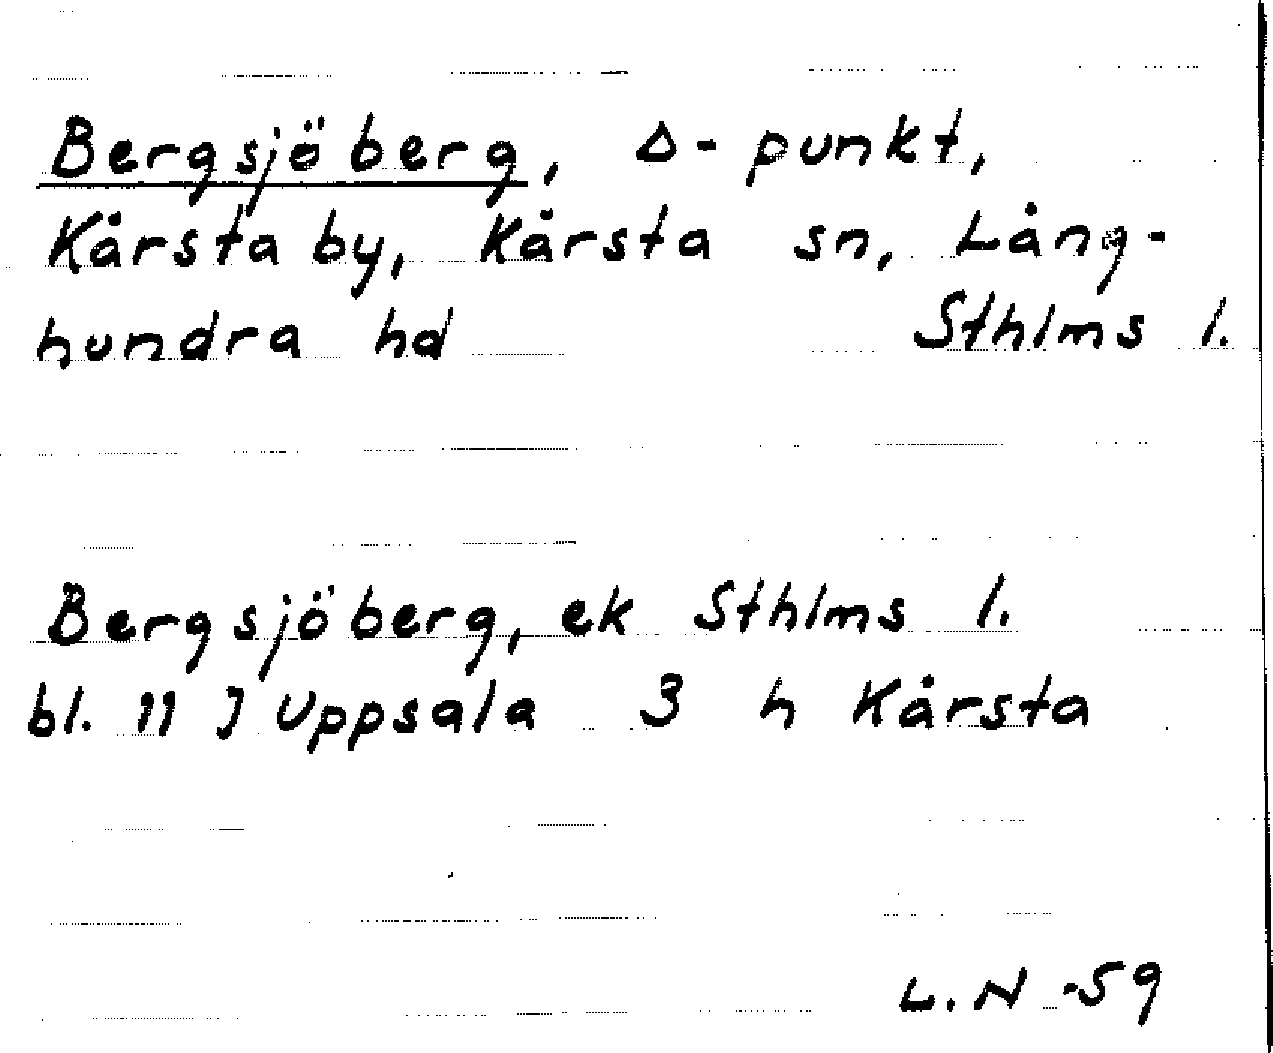 Bergsjöberg, Δ-punkt,
Kårsta by, Kårsta sn, Lång-
hundra hd Sthlms l.
Bergsjöberg, ek Sthlms l.
bl. 11 J Uppsala 3 h Kårsta
L. N -59